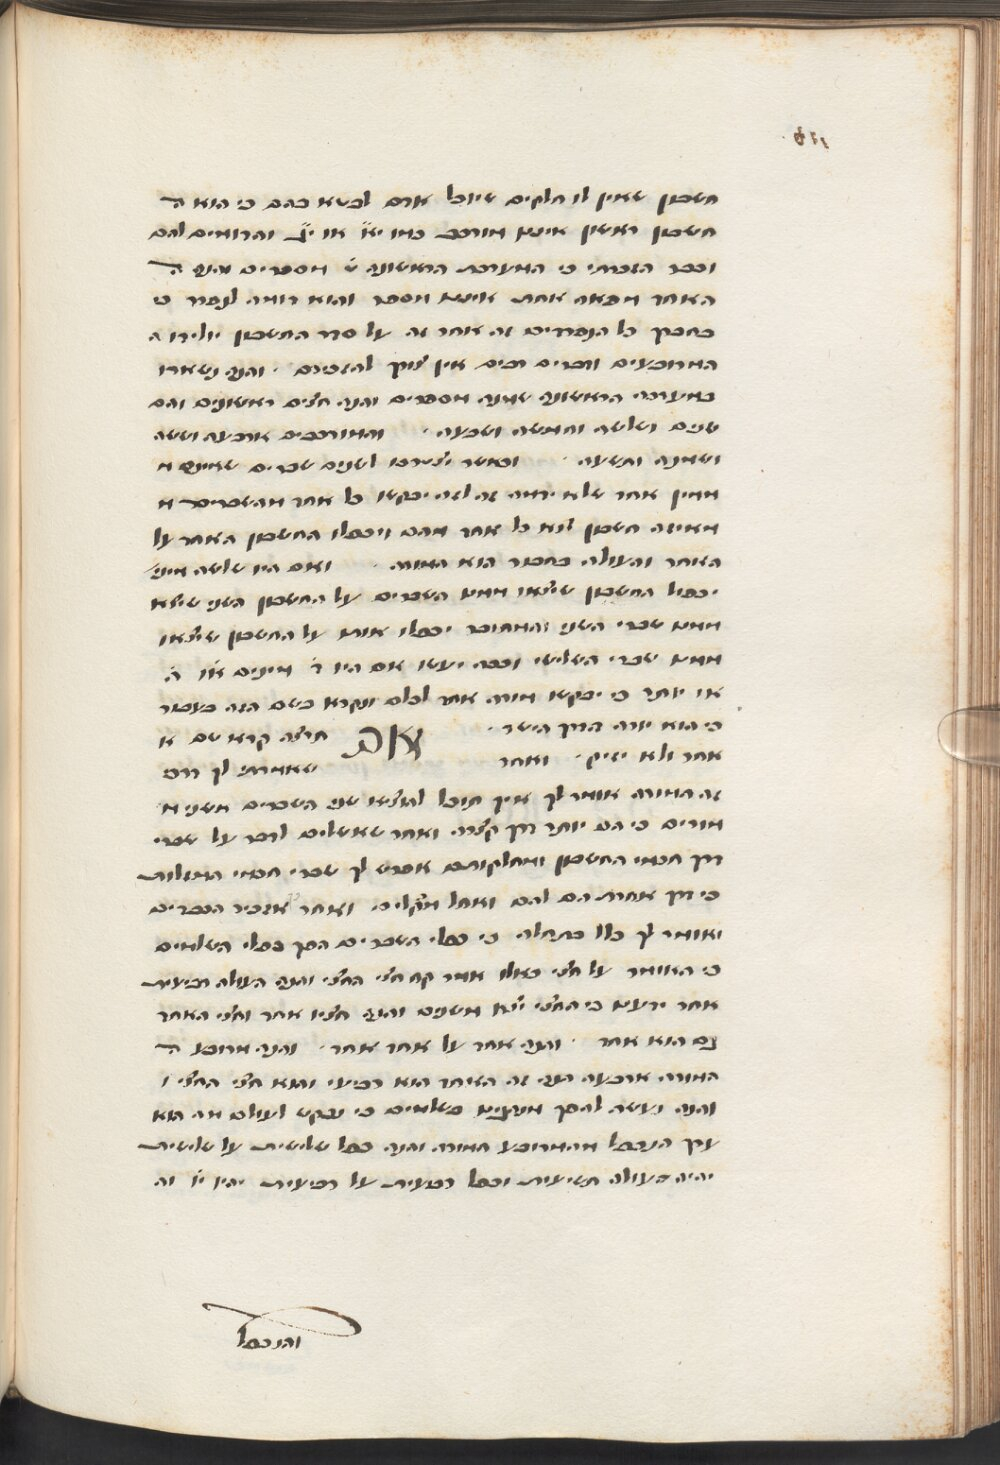 חשבון שאין לו חלקים שיוכל אדם לבטא בהם כי הוא ה
חשבון ראשון איננו מורכב כמו י״א או י״ג והדומים להם
וכבר הזכרתי כי המערכת הראשונה ט׳ מספרים והנה ה
האחד מפאה אחת איננו מספר והוא דומה לנפרד כי
בחברך כל הנפרדים זה אחר זה על סדר החשבון יולידו ה
המרובעים ודברים רבים אין צורך להזכירם · והנה נשארו
במערכה הראשונה שמנה מספרים והנה חצים ראשונים והם
שנים ושלשה וחמשה ושבעה · והמורכבים ארבעה וששה
ושמנה ותשעה · וכאשר יצטרכו לשנים שברים שאינם מ
ממין אחד שלא ידמה זה לזה יבקשו כל אחד מהשברים מ
מאיזה חשבון יצא כל אחד מהם ויכפלו החשבון האחד על
האחר והעולה במספר הוא המורה · ואם היו שלשה מיני
יכפול החשבון שיצאו ממנו השברים על החשבון השני שיצא
ממנו שברי השני והמחובר יכפלו אותו על החשבון שיצאו
ממנו שברי השלישי וככה יעשו אם היו ד׳ מינים או ה׳
או יותר כי יבקשו מורה אחד לכלם ונקרא בשם הזה בעבור
כי הוא יורה הדרך הישר · ואם תרצה קרא שם א
אחר ולא יזיק · ואחר שאמרתי לך דרך
זה המורה אומר לך איך תוכל להוציא שני השברים משני מ
מורים כי הם יותר דרך קצרה ואחר שאשלים לדבר על שברי
דרך חכמי החשבון ומחלקותם אפרש לך שברי חכמי המזלות
כי דרך אחרת הם להם ואחל מהקל · ואחר אזכיר הנכבדים
ואומר לך כלל בתחלה כי כפלי השברים הפך כפלי השלמים
כי האומר על חצי כאלו אמר קח חצי החצי והנה העולה רביעית
אחד ידענו כי החצי יצא משנים והנה חציו אחד וחצי האחר
גם הוא אחד · והנה אחד על אחד אחד · והנה מרובע ה
המורה ארבעה הנה זה האחד הוא רביעי והוא חצי החצי ו
והנה נעשה להפך מנהגנו בשלמים כי נבקש לעולם מה הוא
ערך הנכפל מהמרובע המורה והנה כפל שלישית על שלישית
יהיה העולה תשיעית וכפל רביעית על רביעית יהיו י״ו וה
והנכפל